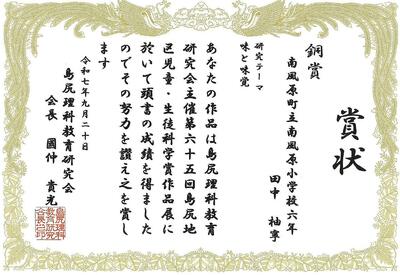 賞状
銅賞
南風原町立南風原小学校六年
田中 柚寧
研究テーマ
味と味覚
あなたの作品は島尻理科教育
研究会主催第六十五回島尻地
区児童・生徒科学賞作品展に
於いて頭書の成績を得ました
のでその努力を讃え之を賞し
ます
令和七年九月二十日
島尻理科教育研究会
会長 國仲 貴光
島尻理科
教育研究
会長之印